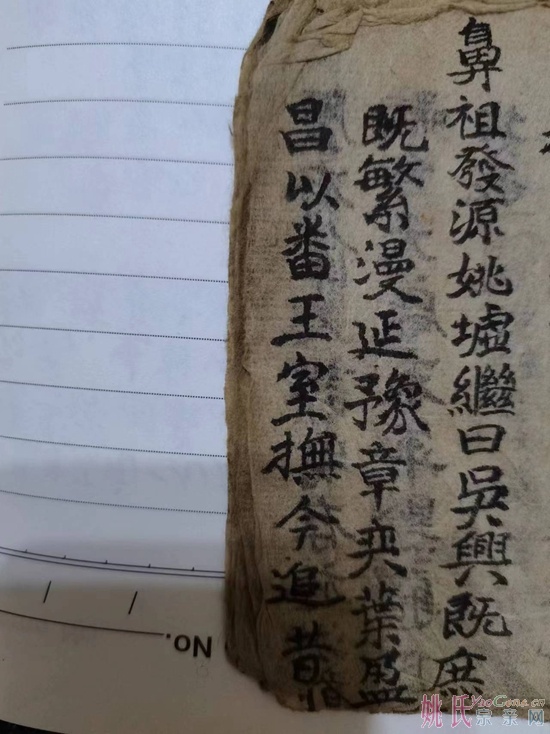 鼻祖發源姚墟繼曰吳興既庶
既繁漫延豫章奕葉盛
昌以番王室撫今追昔
No.
姚氏宗亲网